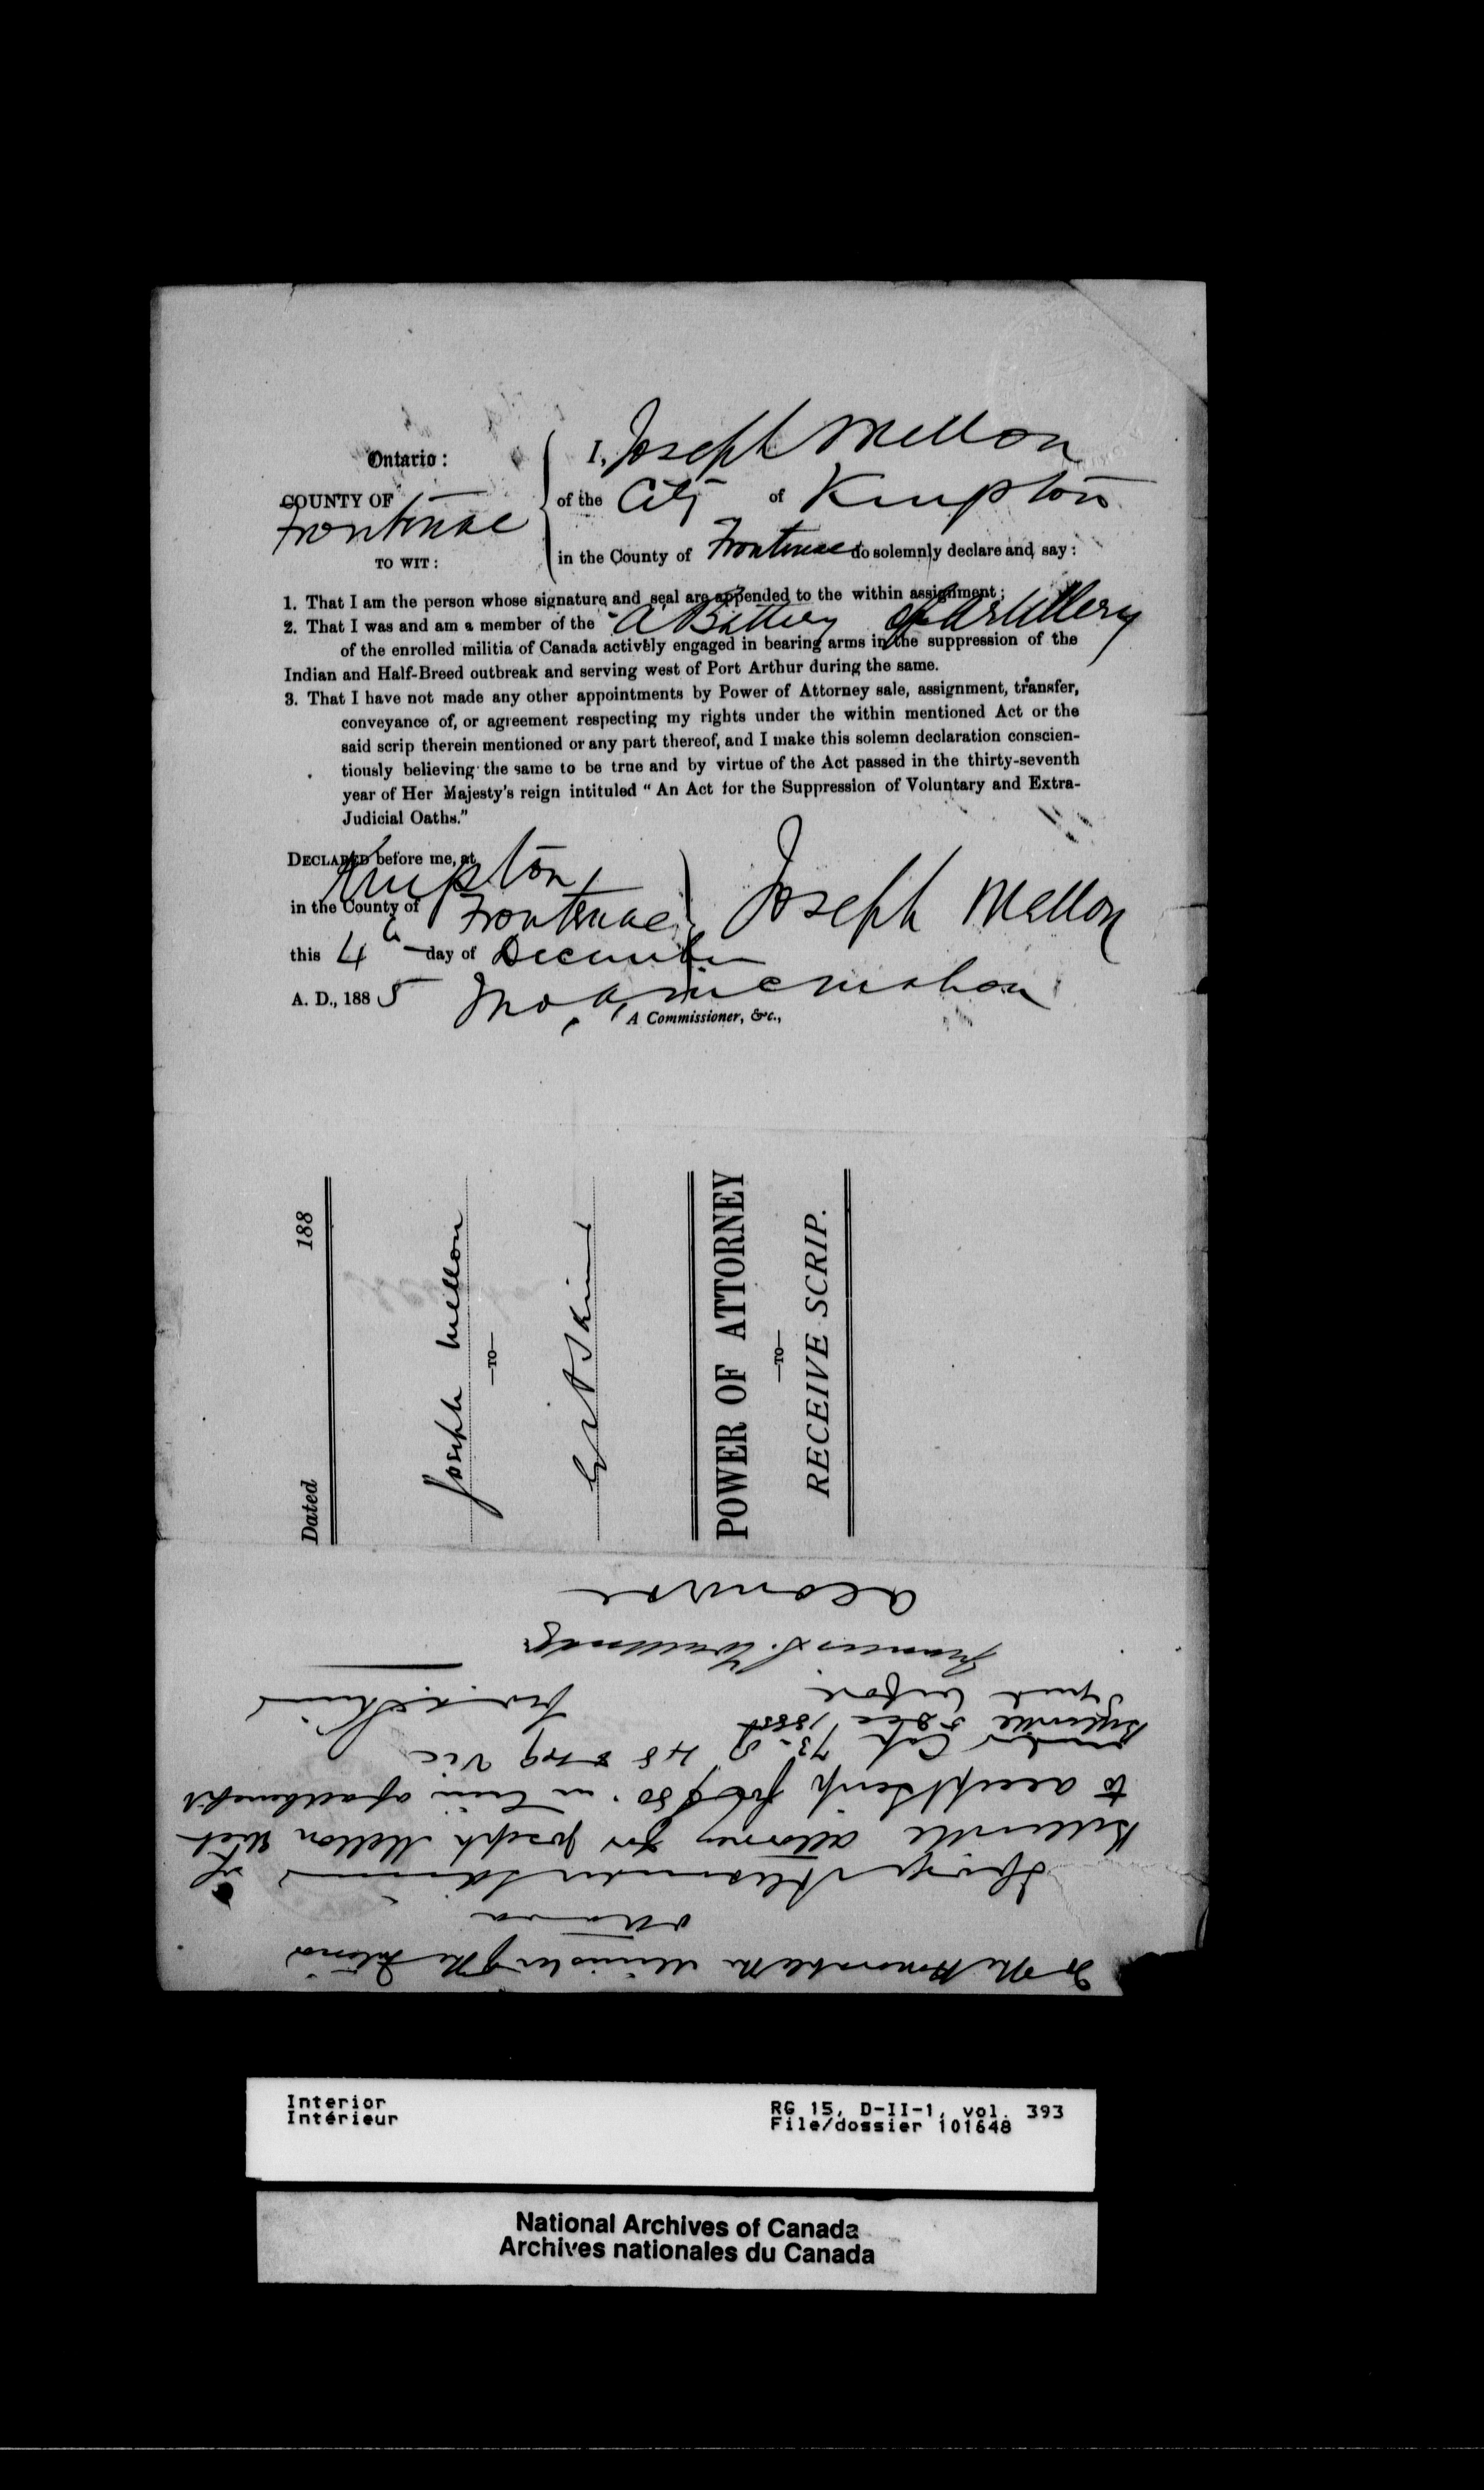 Ontario :
COUNTY OF
Frontenac
TO WIT :
I, Joseph Mellon
of the City of Kingston
in the County of Frontenac do solemnly declare and say :
1. That I am the person whose signature and seal are appended to the within assignment ;
2. That I was and am a member of the "A" Battery of Artillery
of the enrolled militia of Canada actively engaged in bearing arms in the suppression of the
Indian and Half-Breed outbreak and serving west of Port Arthur during the same.
3. That I have not made any other appointments by Power of Attorney sale, assignment, transfer,
conveyance of, or agreement respecting my rights under the within mentioned Act or the
said scrip therein mentioned or any part thereof, and I make this solemn declaration conscien-
tiously believing the same to be true and by virtue of the Act passed in the thirty-seventh
year of Her Majesty's reign intituled “ An Act for the Suppression of Voluntary and Extra-
Judicial Oaths.”
DECLARED before me, at
Kingston
in the County of Frontenac
this 4th day of December
A. D., 1885
Joseph Mellon
Jno. A. McMahon
A Commissioner, &c.,
Dated 188
Joseph Mellon
—TO—
Skinner
POWER OF ATTORNEY
—TO—
RECEIVE SCRIP.
To the Honorable the Minister of the Interior
Ottawa
I George Alexander Skinner of
Belleville attorney for Joseph Mellon elect
to accept scrip for $80. in lieu of all benefit
under Cap 73 48 & 49 Vic
Belleville 5 Dec 1885
Signed before
Francis S. Wallbridge
Interior
Intérieur
RG 15, D-II-1, vol. 393
File/dossier 101648
National Archives of Canada
Archives nationales du Canada